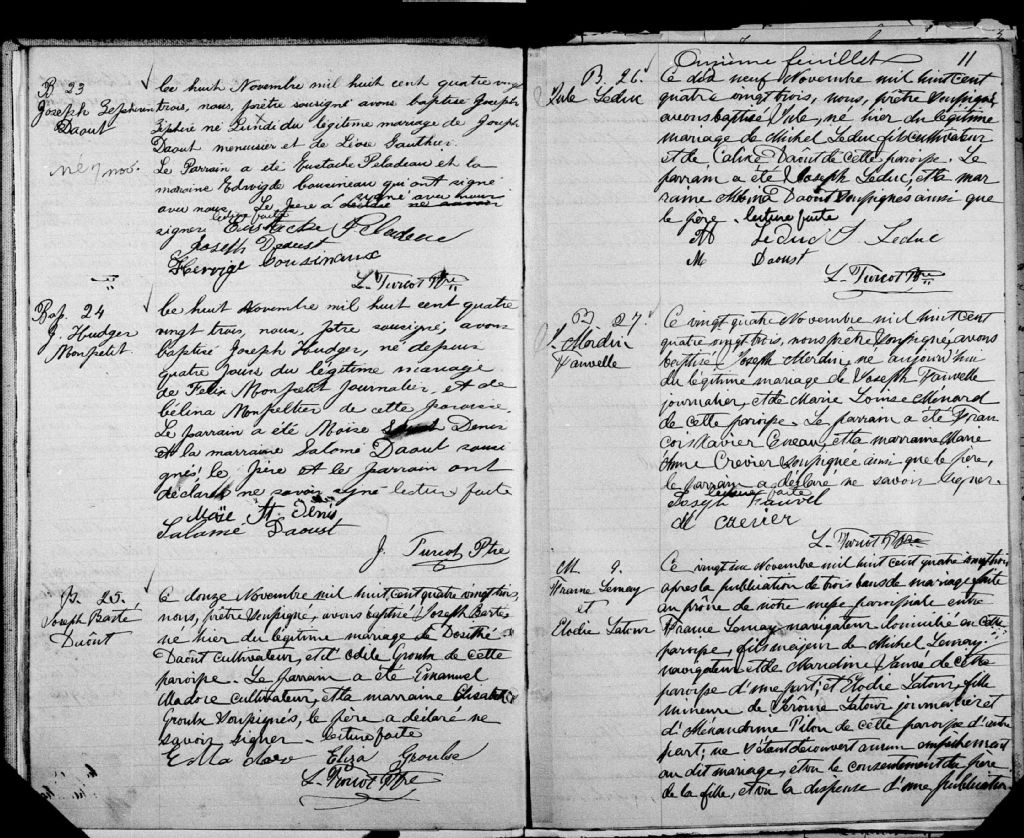 B 23
Joseph Zephirin
Daout
né 7 nov.
Ce huit Novembre mil huit cent quatre vingt
trois, nous, prêtre sousigné avons baptisé Joseph
Zéphire né Lundi du légitime mariage de Joseph
Daout menusier et de Gauthier.
Le Parrain a été Eustache Peladeau et la
maraine Edwidge Cousineau qui ont signé
avec nous. Le père a signé avec nous
lecture faite
signer Eustache Peladeau
Joseph Daoust
Hervige Cousinaux
L. Turcot Ptre
Bap. 24
J. Hudger
Monpetet
Ce huit Novembre mil huit cent quatre
vingt trois, nous, prtre sousigné, avons
baptisé Joseph Hudger, né depuis
quatre jours du légitime mariage
de Felix Monpetit journalier, et de
Célina Monpeltier de cette paroisse.
Le parrain a été Moise Denis
et la marraine Salomé Daout sousi
gnés, le père et le parrain ont
déclaré ne savoir signé lecture faite
Moïse St Denis
Salamé Daoust
J. Turcot Ptre
B. 25.
Joseph Basté
Daôut
Ce douze Novembre mil huit cent quatre vingt trois,
nous, prêtre soussigné, avons baptisé Joseph Barté,
né hier du légitime mariage de Dosithé
Daôut cultivateur, et d'Odile Groulx de cette
paroisse. Le parrain a été Emanuel
Madore cultivateur, et la marraine Elisabeth
Groulx soussignés, le père a déclaré ne
savoir signer. lecture faite
Eliza Groulx
L. Turcot Ptre
Onzieme feuillet 11
B. 26.
Jule Leduc
Ce dix neuf Novembre mil huit cent
quatre vingt trois, nous, prêtre soussigné
avons baptisé Jule, né hier du légitime
mariage de Michel Leduc fils cultivateur
et de Daôut de cette paroisse. Le
parrain a été Joseph Leduc, et la mar
raine Daout soussignés ainsi que
le père. lecture faite
M Leduc J Leduc
M Daoust
L. Turcot Ptre
B. 27.
J. Merdin
Fauvelle
Ce vingt quatre Novembre mil huit cent
quatre vingt trois, nous prêtre soussigné, avons
baptisé Joseph Merdin, né aujourd'hui
du légitime mariage de Joseph Fauvelle
journalier, et de Marie Louise Ménard
de cette paroisse. Le parrain a été Fran
cois Xavier et la marraine Marie
Anne Crevier soussignée ainsi que le père,
le parrain a déclaré ne savoir signer.
lecture faite
Joseph Fauvel
M crevier
L. Turcot Ptre
M. 9.
Lemay
et
Elodie Latour
Ce vingt six Novembre mil huit cent quatre vingt trois
après la publication de trois bans de mariage faite
au prône de notre messe paroissiale entre
Lemay, navigateur domicilié en cette
paroisse, fils majeur de Michel Lemay
navigateur et de de cette
paroisse d'une part; et Elodie Latour, fille
mineure de Jérôme Latour journalier et
d' Pilon de cette paroisse d'autre
part: ne s'étant découvert aucun empêchement
au dit mariage, et vu le consentement du père
de la fille, et vu la dispense d'une publication